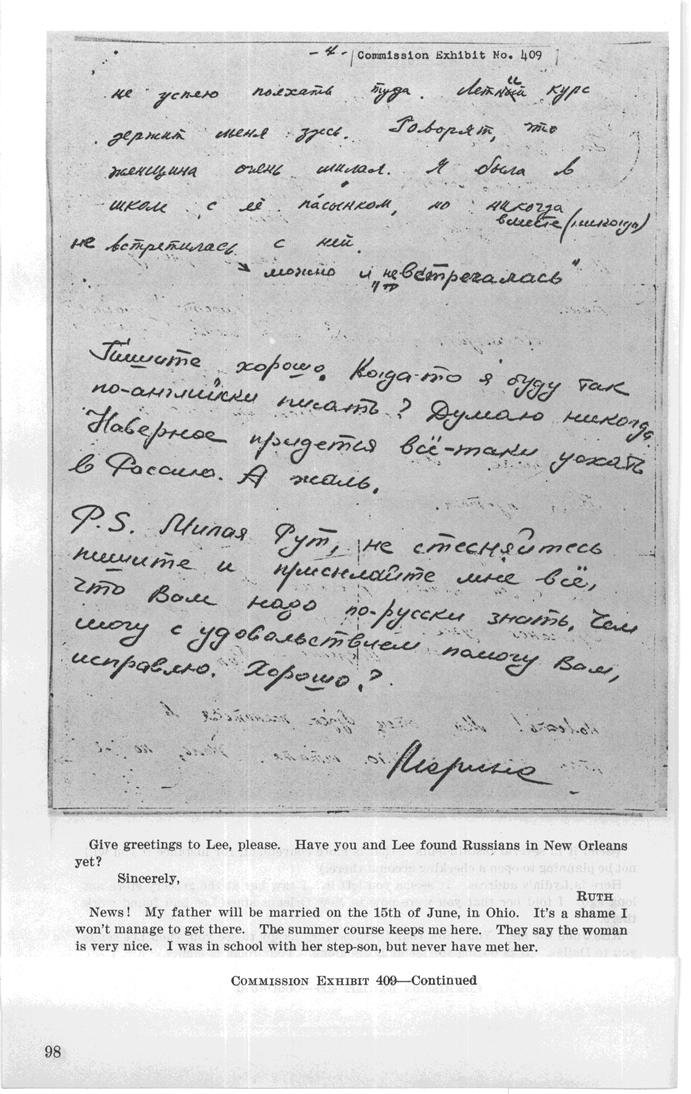 - 4 - Commission Exhibit No. 409
не успею поехать туда. Летний курс
держит меня здесь. Говорят, что
женщина очень милая. Я была в
школе с её пасынком, но никогда
вместе (никогда)
не встретилась с ней.
можно и "не встречалась"
Пишите хорошо. Когда-то я буду так
по-английски писать? Думаю никогда.
Наверное придется всё-таки уехать
в Россию. А жаль.
P.S. Милая Рут, не стесняйтесь
пишите и присылайте мне всё,
что Вам надо по-русски знать. Чем
могу с удовольствием помогу Вам,
исправлю. Хорошо?
Марина
Give greetings to Lee, please. Have you and Lee found Russians in New Orleans
yet?
Sincerely,
RUTH
News! My father will be married on the 15th of June, in Ohio. It's a shame I
won't manage to get there. The summer course keeps me here. They say the woman
is very nice. I was in school with her step-son, but never have met her.
COMMISSION EXHIBIT 409—Continued
98